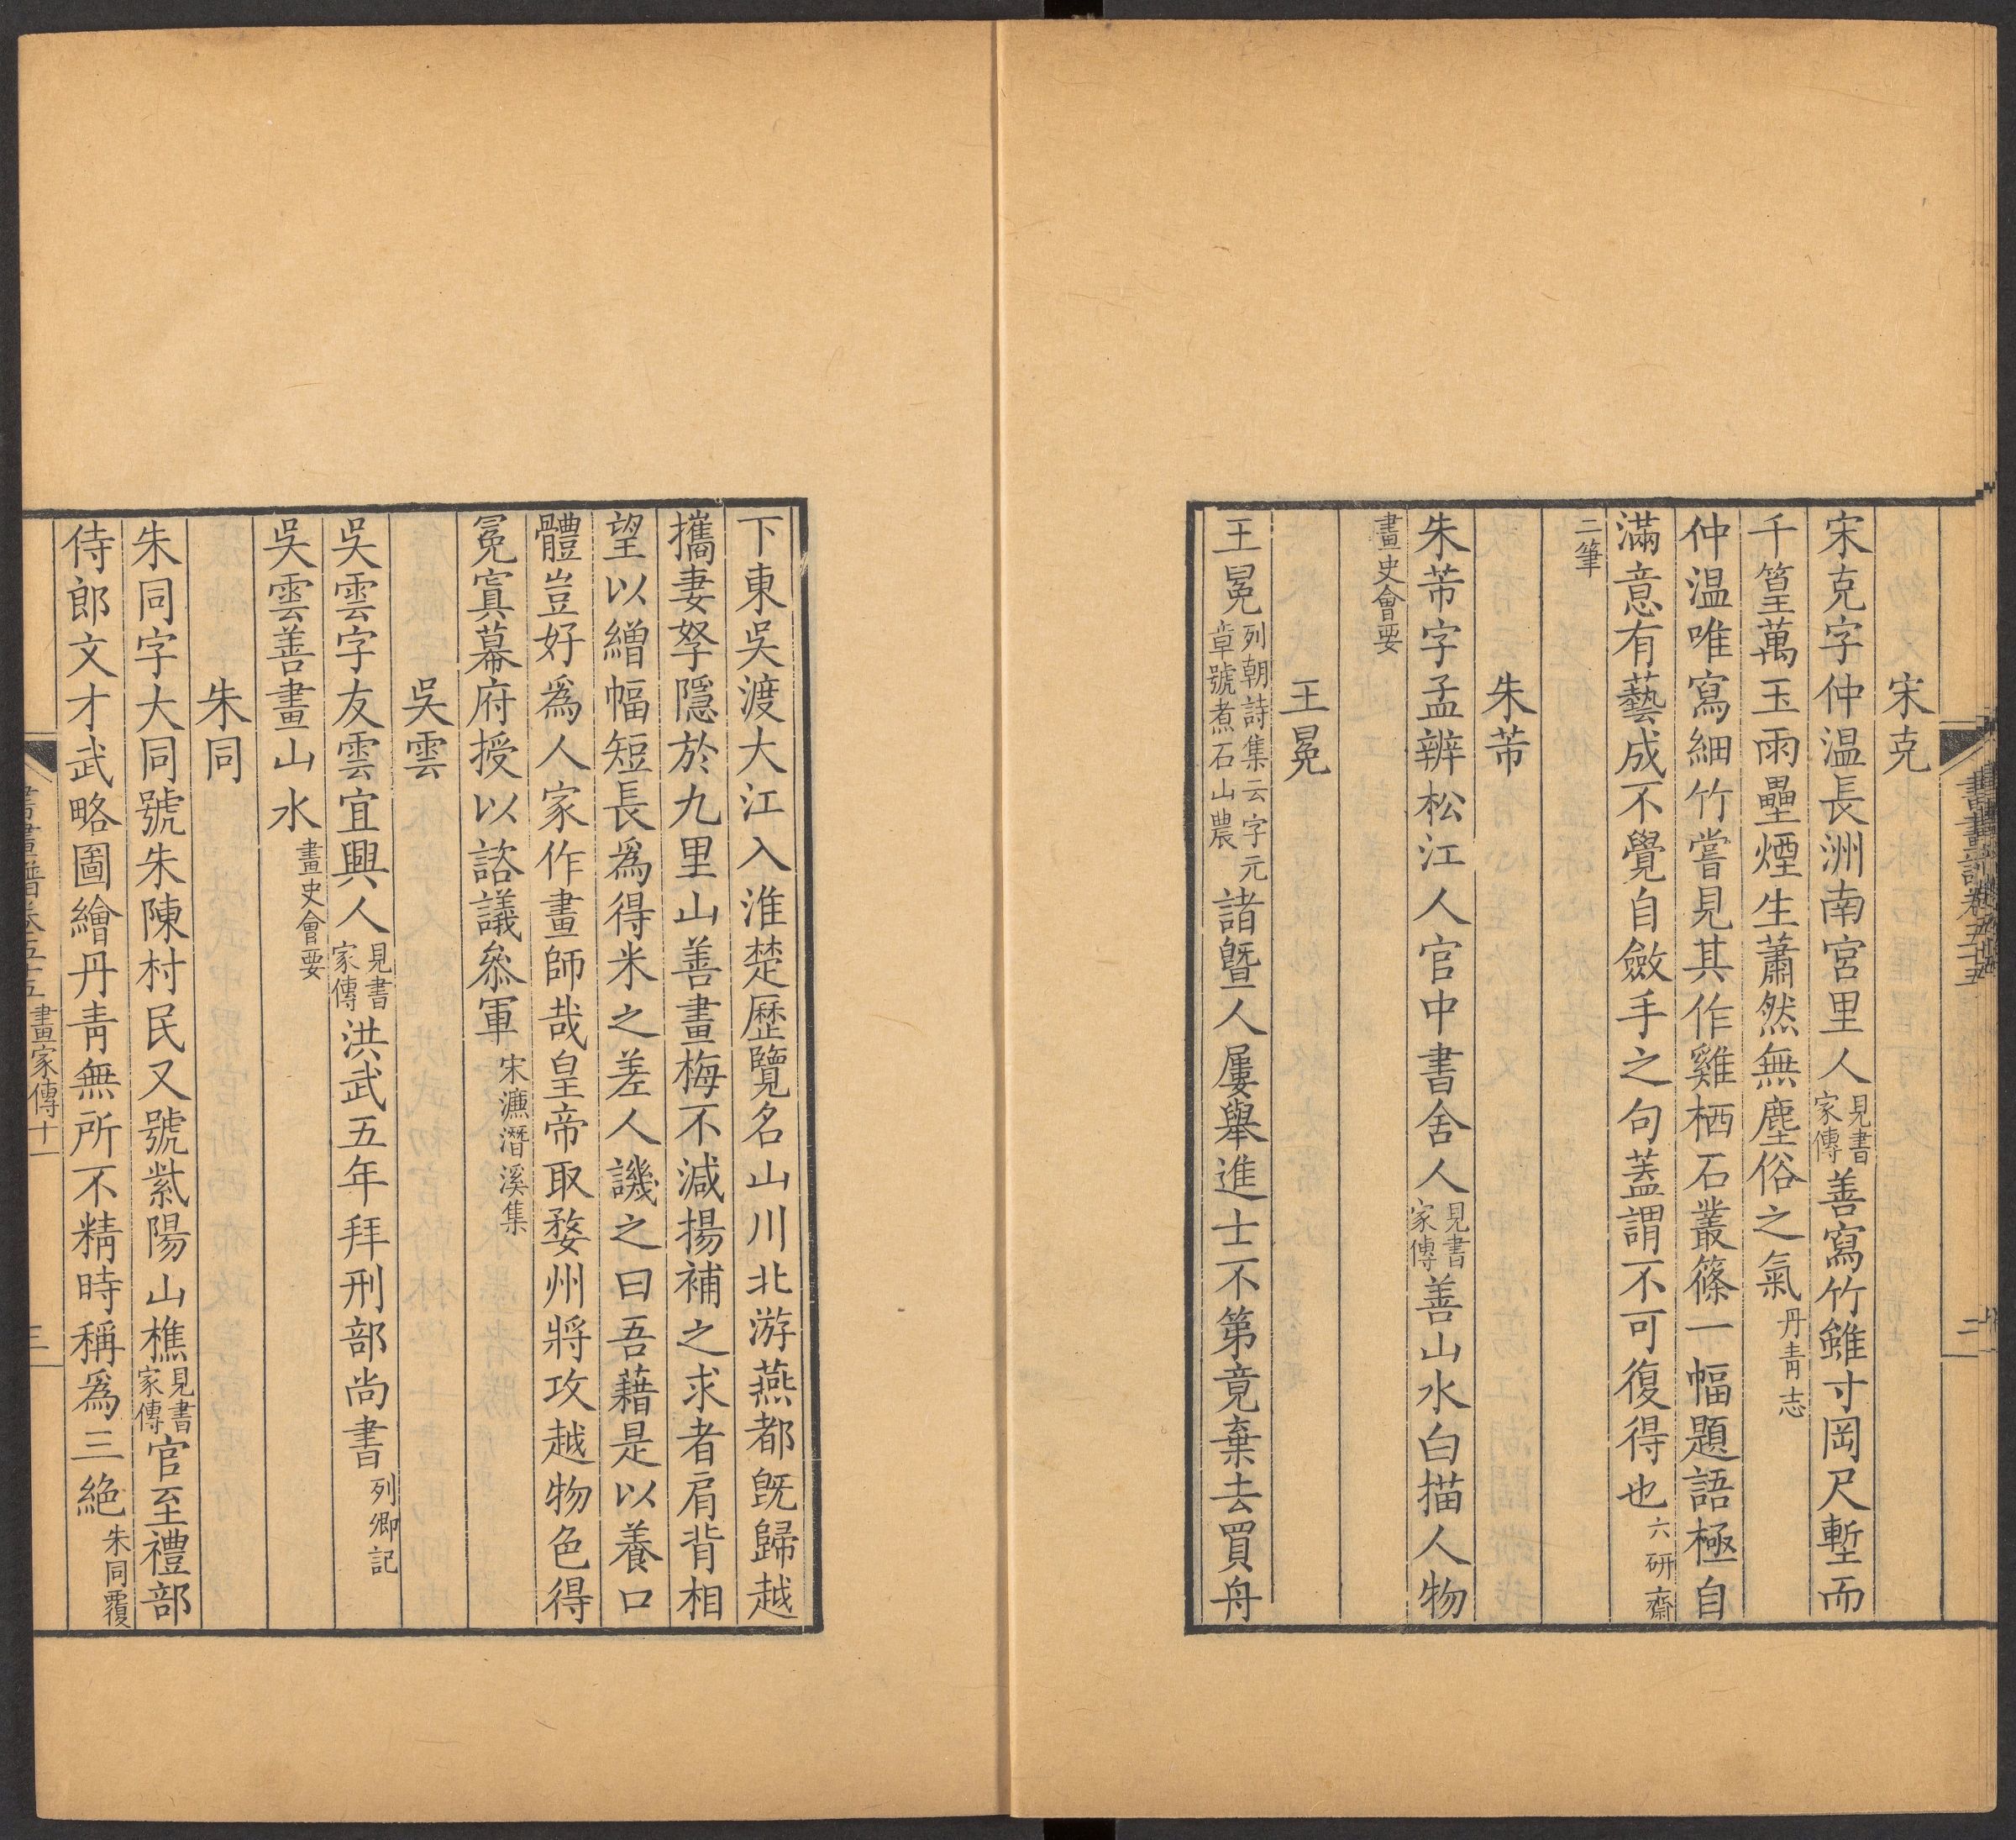 宋克
宋克字仲温長洲南宮里人見書家傳善寫竹雖寸岡尺塹而
千篁萬玉雨壘煙生蕭然無塵俗之氣丹青志
仲温唯寫細竹嘗見其作雞栖石叢篠一幅題語極自
滿意有藝成不覺自斂手之句蓋謂不可復得也六研齋
二筆
朱芾
朱芾字孟辨松江人官中書舍人見書家傳善山水白描人物
畫史會要
王冕
王冕列朝詩集云字元章號煮石山農諸暨人屢舉進士不第竟棄去買舟
下東吳渡大江入淮楚歷覽名山川北游燕都既歸越
攜妻孥隱於九里山善畫梅不減揚補之求者肩背相
望以繒幅短長爲得米之差人譏之曰吾藉是以養口
體豈好爲人家作畫師哉皇帝取婺州將攻越物色得
冕寘幕府授以諮議參軍宋濂潛溪集
吳雲
吳雲字友雲宜興人見書家傳洪武五年拜刑部尚書列卿記
吳雲善畫山水畫史會要
朱同
朱同字大同號朱陳村民又號紫陽山樵見書家傳官至禮部
侍郎文才武略圖繪丹青無所不精時稱爲三絕朱同覆
書畫譜卷五十五 畫家傳十一
三